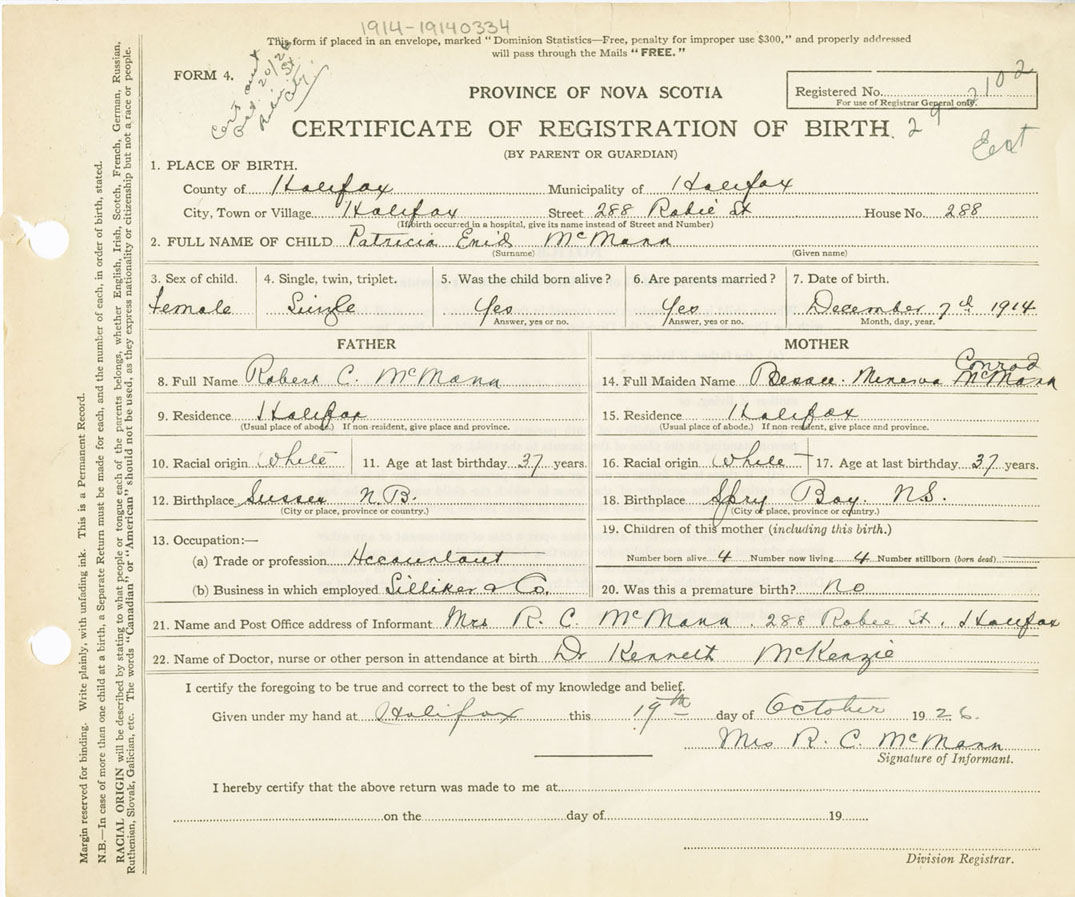 1914-19140334
This form if placed in an envelope, marked "Dominion Statistics—Free, penalty for improper use $300," and properly addressed
will pass through the Mails "FREE."
FORM 4.
PROVINCE OF NOVA SCOTIA
Registered No. 2102
For use of Registrar General only.
CERTIFICATE OF REGISTRATION OF BIRTH. 29
(BY PARENT OR GUARDIAN)
1. PLACE OF BIRTH.
County of Halifax Municipality of Halifax
City, Town or Village Halifax Street 288 Robie St House No. 288
(If birth occurred in a hospital, give its name instead of Street and Number)
2. FULL NAME OF CHILD Patricia Enid McMann
(Surname) (Given name)
3. Sex of child. 4. Single, twin, triplet. 5. Was the child born alive? 6. Are parents married? 7. Date of birth.
Female Single Yes Yes December 7th 1914
Answer, yes or no. Answer, yes or no. Month, day, year.
FATHER MOTHER
Conrad
8. Full Name Robert C. McMann 14. Full Maiden Name Minerva McMann
9. Residence Halifax 15. Residence Halifax
(Usual place of abode.) If non resident, give place and province. (Usual place of abode.) If non resident, give place and province.
10. Racial origin White 11. Age at last birthday 37 years. 16. Racial origin White 17. Age at last birthday 37 years.
12. Birthplace Sussex N.B. 18. Birthplace Spry Bay. NS.
(City or place, province or country.) (City or place, province or country.)
19. Children of this mother (including this birth.)
13. Occupation:—
(a) Trade or profession Accountant Number born alive 4 Number now living 4 Number stillborn (born dead)
(b) Business in which employed Silliker & Co. 20. Was this a premature birth? No
21. Name and Post Office address of Informant Mrs R. C. McMann. 288 Robie St, Halifax
22. Name of Doctor, nurse or other person in attendance at birth Dr Kenneth McKenzie
I certify the foregoing to be true and correct to the best of my knowledge and belief.
Given under my hand at Halifax this 19th day of October 1926.
Mrs R. C. McMann
Signature of Informant.
I hereby certify that the above return was made to me at
on the day of 19
Division Registrar.
Margin reserved for binding. Write plainly, with unfading ink. This is a Permanent Record.
N.B.—In case of more than one child at a birth, a Separate Return must be made for each, and the number of each, in order of birth, stated.
RACIAL ORIGIN will be described by stating to what people or tongue each of the parents belongs, whether English, Irish, Scotch, French, German, Russian,
Ruthenian, Slovak, Galician, etc. The words "Canadian" or "American" should not be used, as they express nationality or citizenship but not a race or people.